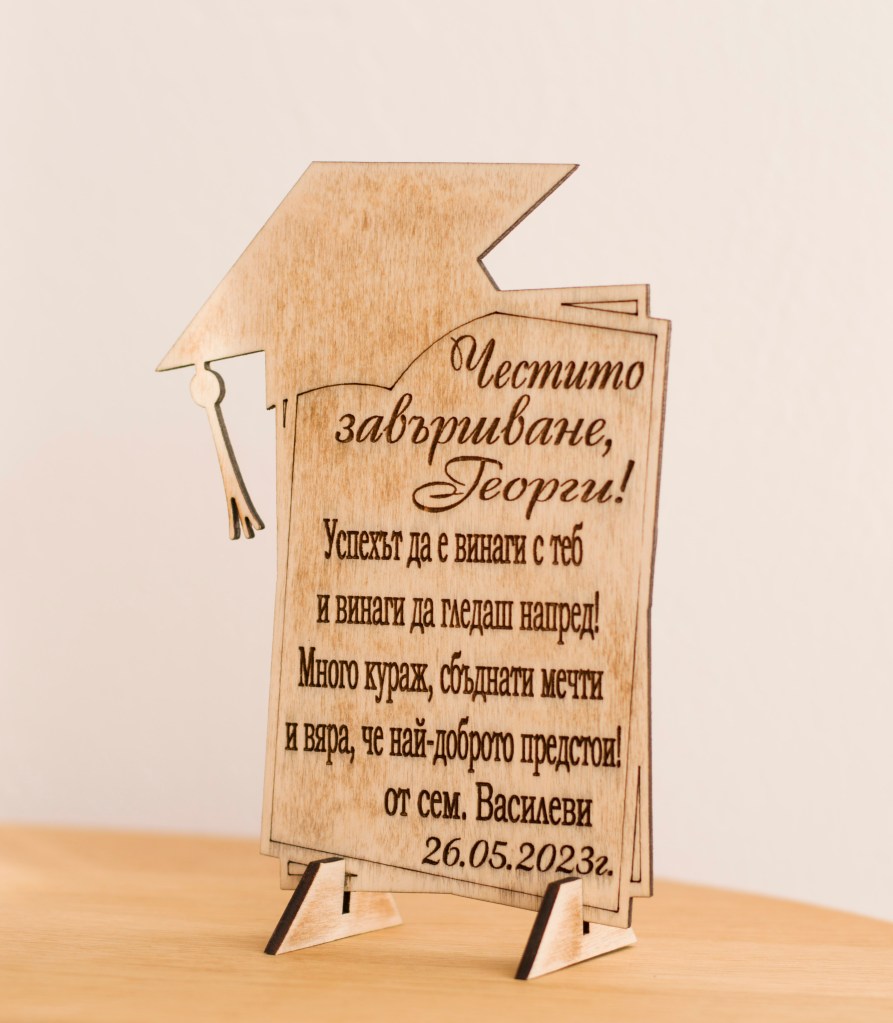 Честито
завършване,
Георги!
Успехът да е винаги с теб
и винаги да гледаш напред!
Много кураж, сбъднати мечти
и вяра, че най-доброто предстои!
от сем. Василеви
26.05.2023г.